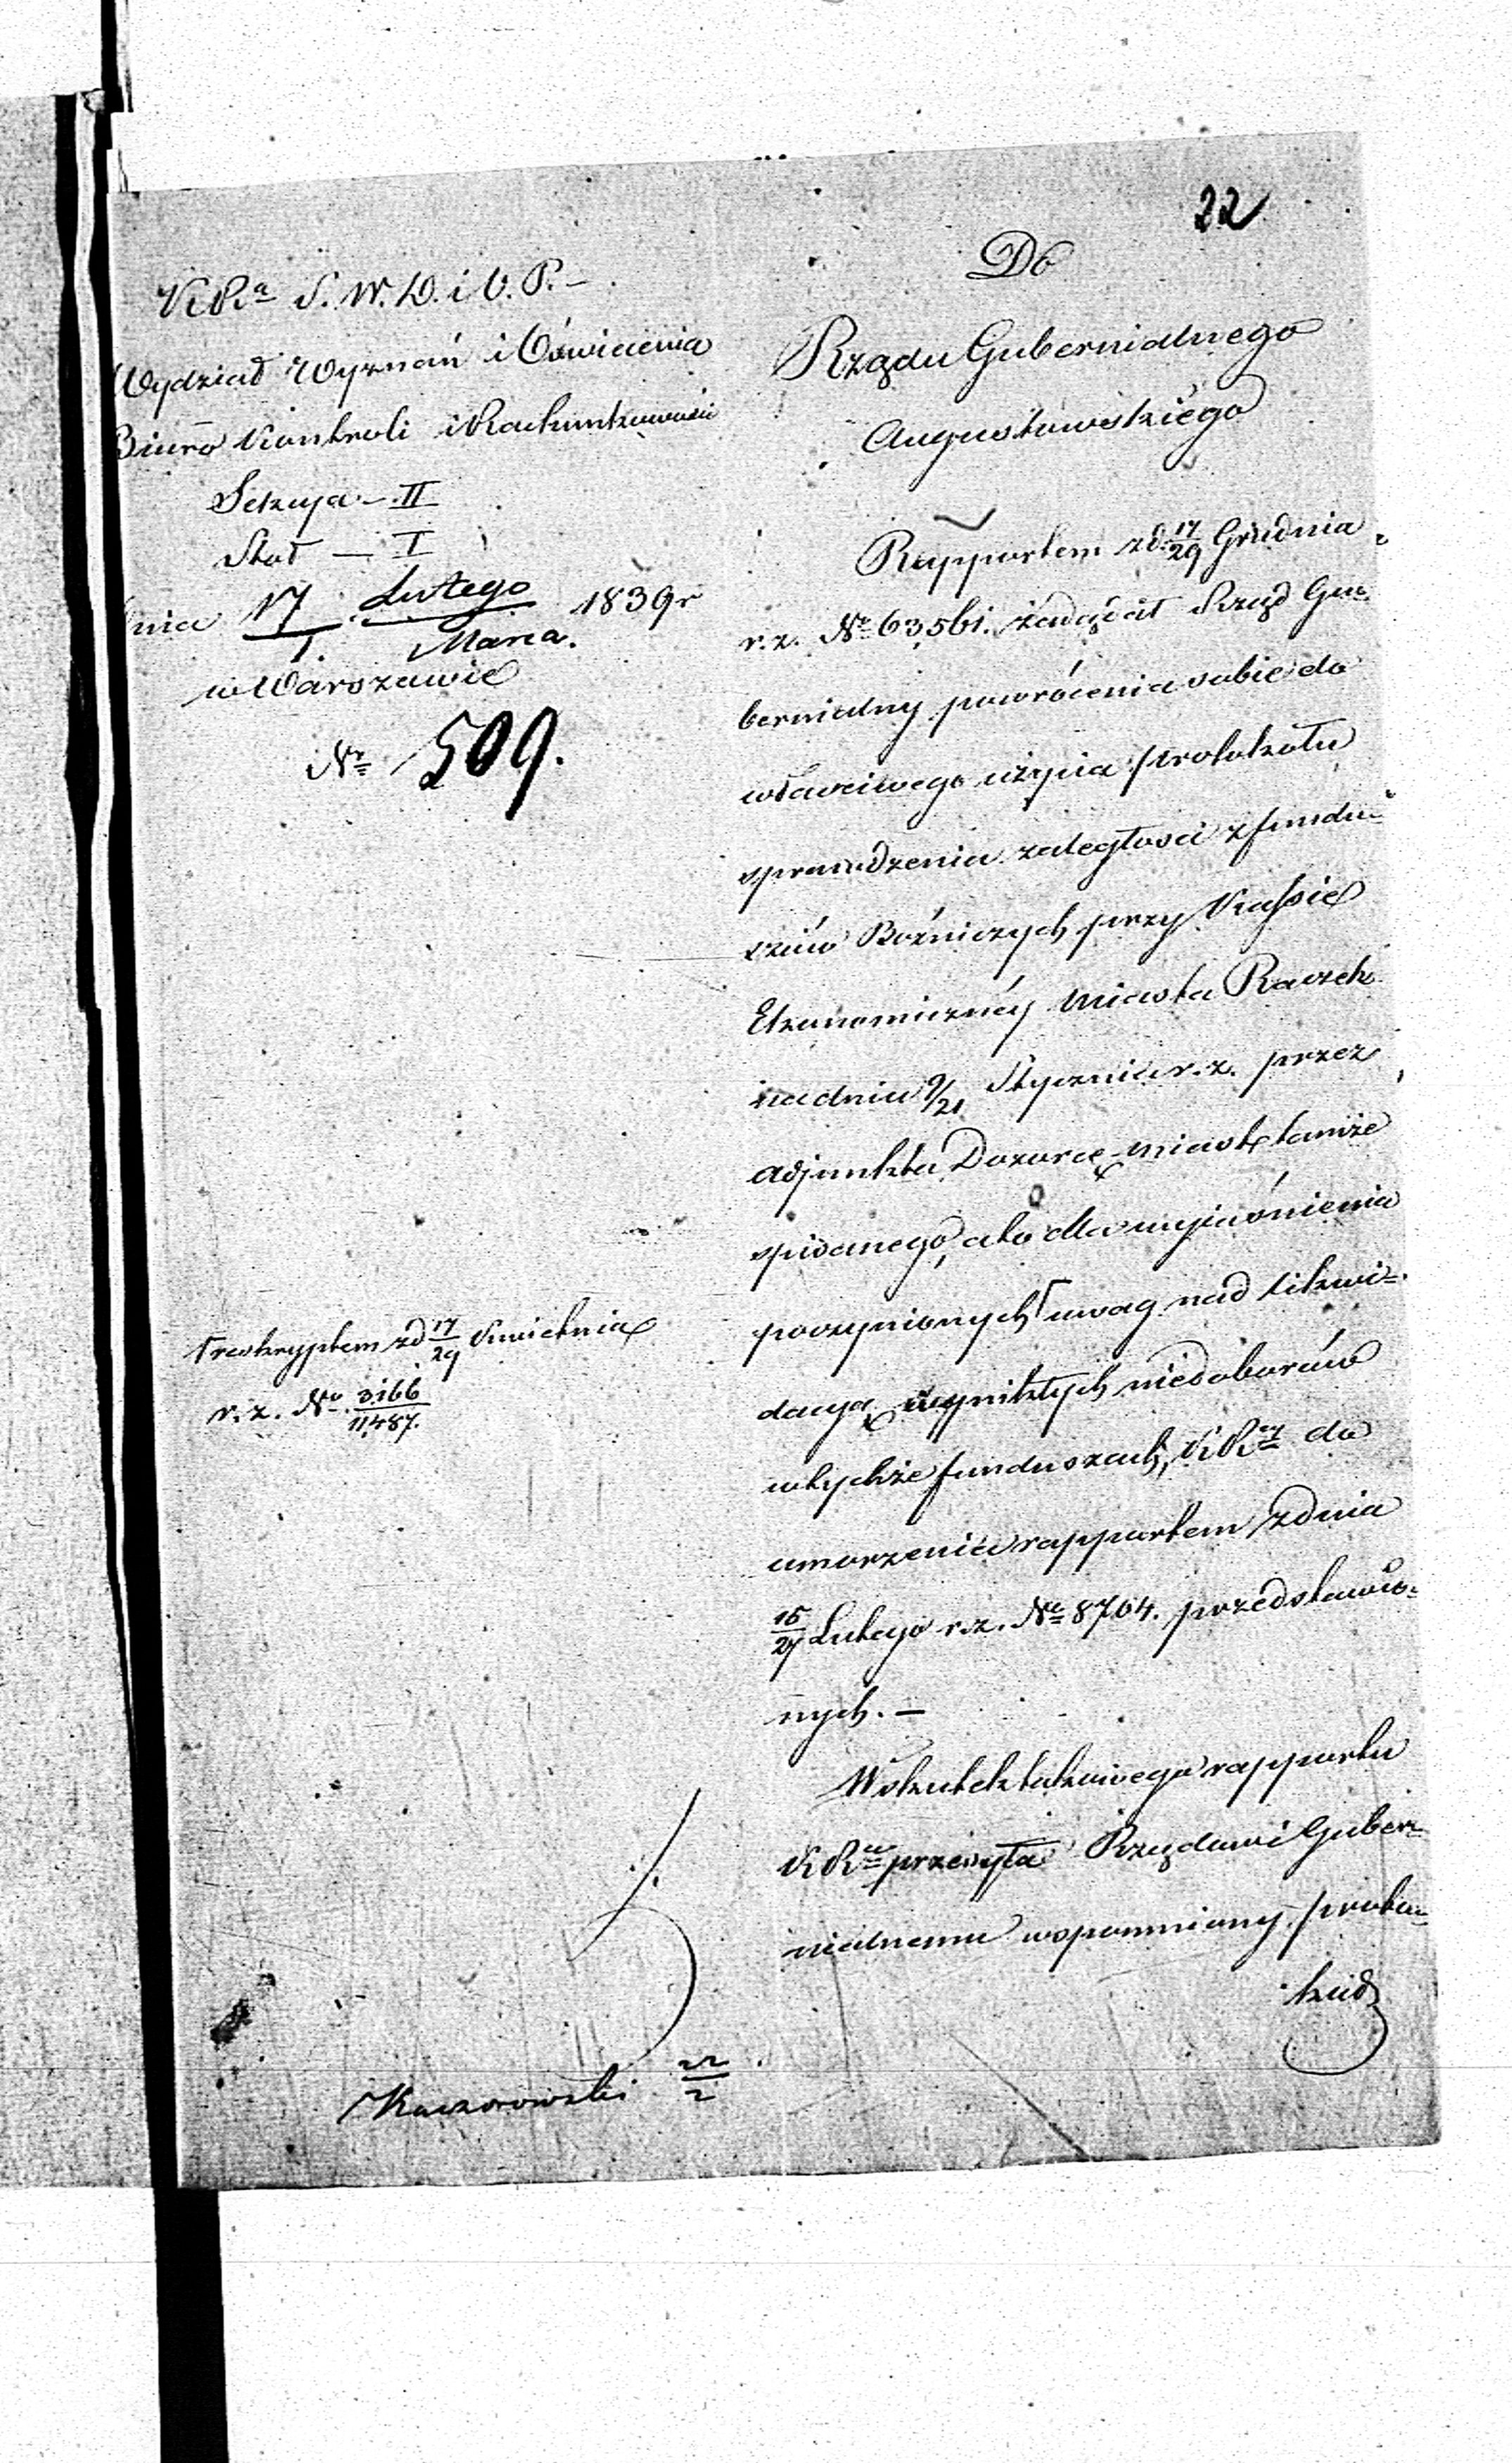 22
KRa S. W. D. i O. P. –
Wydział Wyznań i Oświecenia
Biuro Kontroli i Rachunkowości
Sekcya – II
Stoł — I
dnia 17/1. Lutego/Marca. 1839 r
w Warszawie
No 509.
Do
Rządu Gubernialnego
Augustowskiego
Rapportem z d. 17/29 Grudnia
r. z. No 63,561. zażądał Rząd Gu=
bernialny powrócenia sobie do
właściwego użycia protokołu
sprawdzenia zaległości z fundu=
szów Bożniczych przy Kassie
Ekonomicznéy Miasta Raczek
na dniu 9/21 Stycznia r. z. przez
Adjunkta Dozorcę Miast tamże
spisanego, a to dla wyjaśnienia
poczynionych Γ uwag nad likwi=
dacyą wynikłych niedoborów
w tychże funduszach, KRey do
umorzenia rapportem z dnia
15/27 Lutego r. z. No 8704. przedstawio=
nych. —
W skutek takowego rapportu
KRa przesyła Rządowi Guber=
nialnemu wspomniony proto=
kuł
Γ reskryptem z d 17/29 Kwietnia
r. z. No. 3166/11,487.
./.
Kaczorowski 22/2